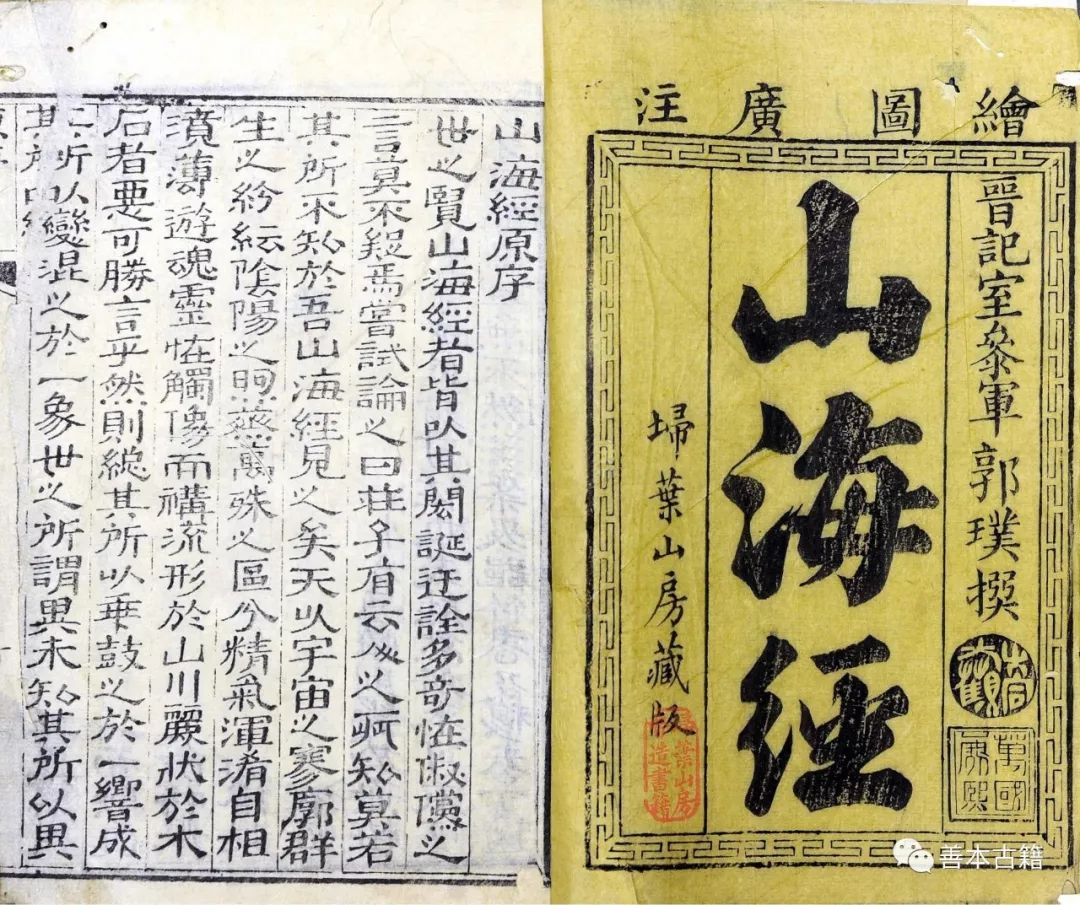 繪圖廣注
晉記室叅軍郭璞撰
山海經
埽葉山房藏版
萬國咸熙
葉山房
造書籍
山海經原序
世之覽山海經者皆以其閎誕迂誇多奇怪俶儻之
言莫不疑焉嘗試論之曰莊子有云人之所知莫若
其所不知於吾山海經見之矣夫以宇宙之寥廓群
生之紛紜陰陽之煦蒸萬殊之區分精氣渾淆自相
濆薄遊魂靈怪觸像而構流形於山川麗狀於木
石者惡可勝言乎然則總其所以乖鼓之於一響成
其所以變混之於一象世之所謂異未知其所以異
善本古籍